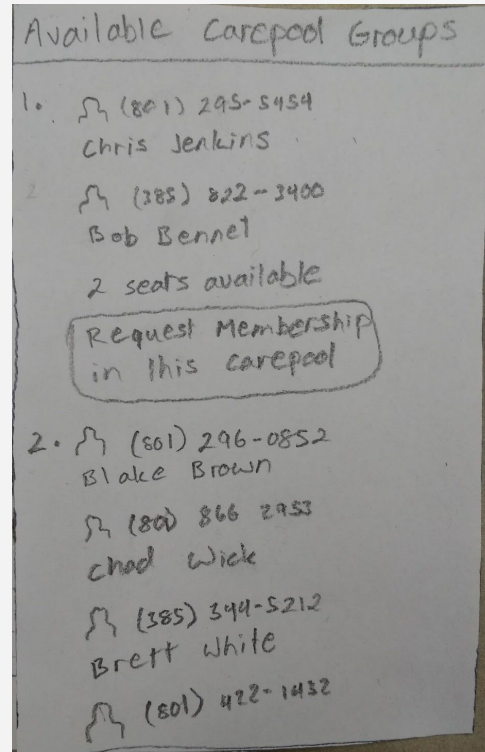 Available Carepool Groups
1. (801) 295-5454
Chris Jenkins
(385) 822-3400
Bob Bennet
2 seats available
Request Membership
in this carepool
2. (801) 296-0852
Blake Brown
(801) 866 2953
Chad Wick
(385) 394-5212
Brett White
(801) 422-1432